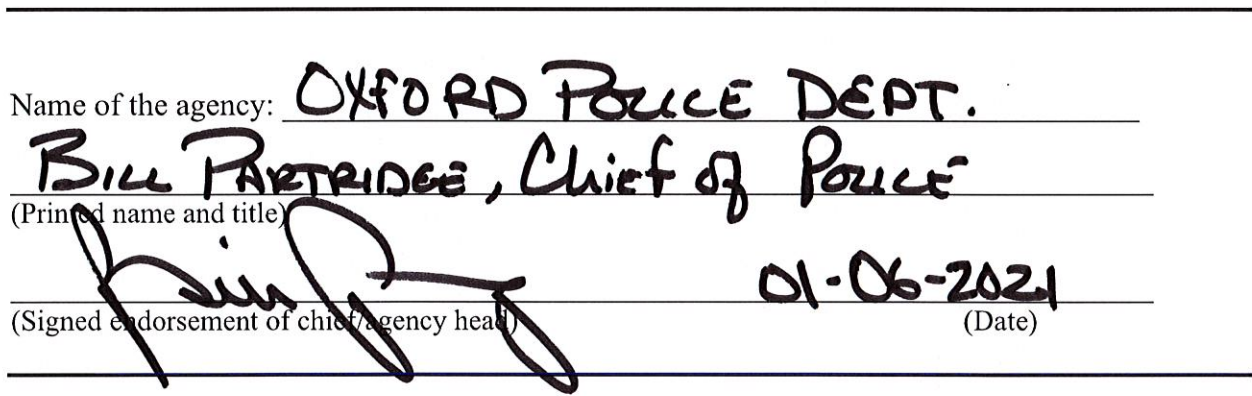 Name of the agency: OXFORD POLICE DEPT.
BILL PARTRIDGE, Chief of POLICE
(Printed name and title)
01-06-2021
(Signed endorsement of chief/agency head) (Date)